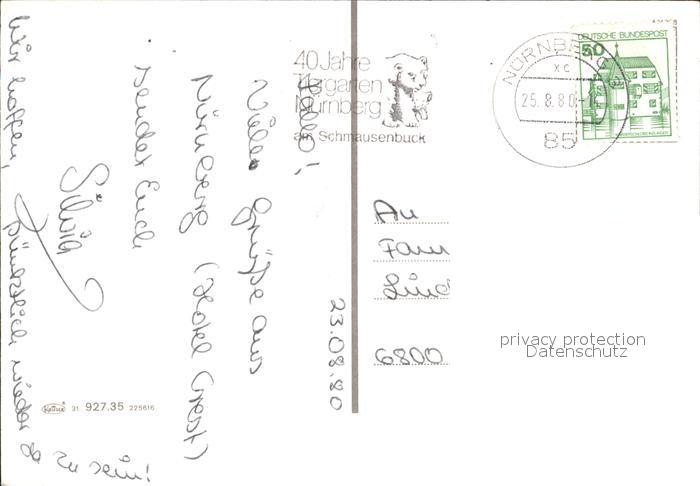 23.08.80
Hallo!
Viele Grüße aus
Nürnberg (Hotel Crest)
sendet Euch
Silvia
Wir hoffen, pünktlich wieder
zu
40 Jahre
Tiergarten
Nürnberg
am Schmausenbuck
NÜRNBERG
xc
25.8.80
85
DEUTSCHE BUNDESPOST
50
An
Fam
Lind
6800
privacy protection
Datenschutz
Krüger 31 927.35 225616